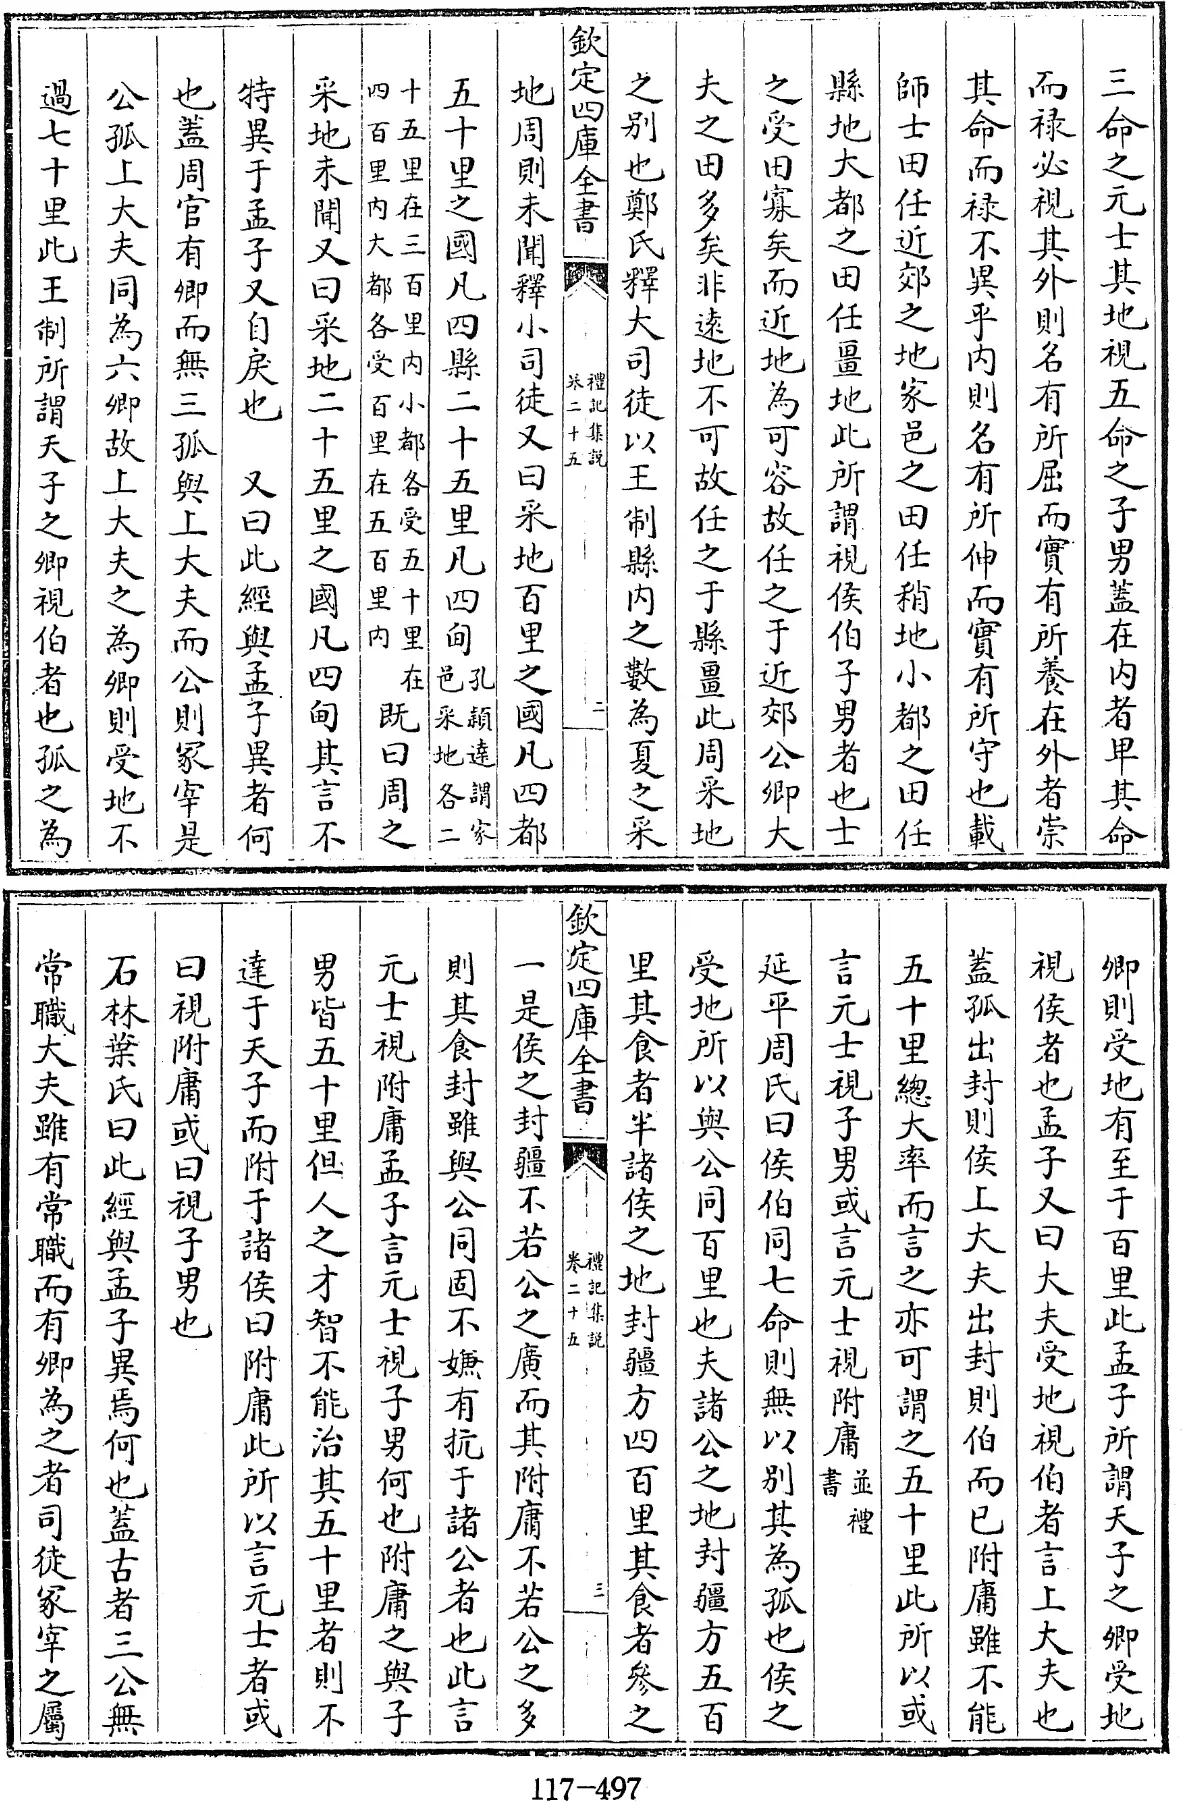 三命之元士其地視五命之子男蓋在内者卑其命
而禄必視其外則名有所屈而實有所養在外者崇
其命而禄不異乎内則名有所伸而實有所守也載
師士田任近郊之地家邑之田任稍地小都之田任
縣地大都之田任畺地此所謂視侯伯子男者也士
之受田寡矣而近地為可容故任之于近郊公卿大
夫之田多矣非遠地不可故任之于縣畺此周采地
之别也鄭氏釋大司徒以王制縣内之數為夏之采
欽定四庫全書
禮記集説
卷二十五
二
地周則未聞釋小司徒又曰采地百里之國凡四都
五十里之國凡四縣二十五里凡四甸孔頴達謂家
邑采地各二
十五里在三百里内小都各受五十里在
四百里内大都各受百里在五百里内既曰周之
采地未聞又曰采地二十五里之國凡四甸其言不
特異于孟子又自戾也　又曰此經與孟子異者何
也蓋周官有卿而無三孤與上大夫而公則冢宰是
公孤上大夫同為六卿故上大夫之為卿則受地不
過七十里此王制所謂天子之卿視伯者也孤之為
卿則受地有至于百里此孟子所謂天子之卿受地
視侯者也孟子又曰大夫受地視伯者言上大夫也
蓋孤出封則侯上大夫出封則伯而已附庸雖不能
五十里總大率而言之亦可謂之五十里此所以或
言元士視子男或言元士視附庸並禮
書
延平周氏曰侯伯同七命則無以别其為孤也侯之
受地所以與公同百里也夫諸公之地封疆方五百
里其食者半諸侯之地封疆方四百里其食者參之
欽定四庫全書
禮記集説
卷二十五
三
一是侯之封疆不若公之廣而其附庸不若公之多
則其食封雖與公同固不嫌有抗于諸公者也此言
元士視附庸孟子言元士視子男何也附庸之與子
男皆五十里但人之才智不能治其五十里者則不
達于天子而附于諸侯曰附庸此所以言元士者或
曰視附庸或曰視子男也
石林葉氏曰此經與孟子異焉何也蓋古者三公無
常職大夫雖有常職而有卿為之者司徒冢宰之屬
117-497